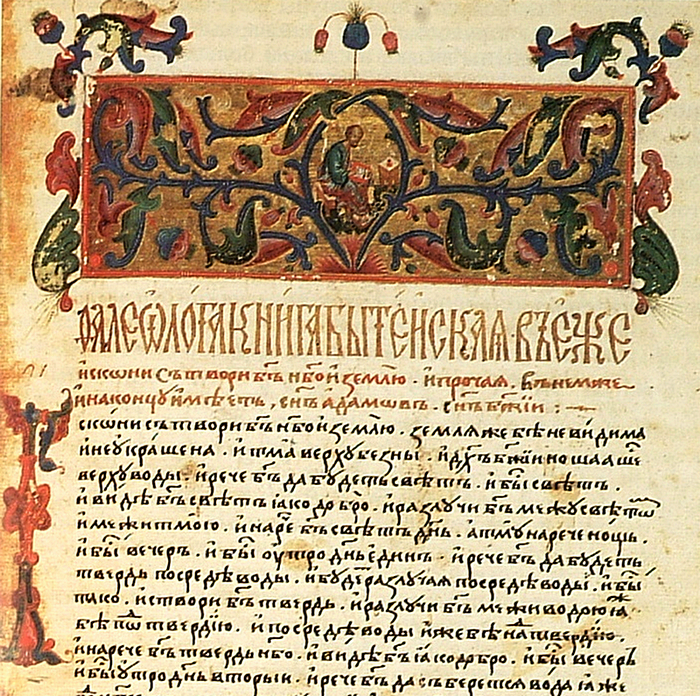 ѱалеѡлога книга бытейскаѧ въ еже
искони сътвори бг҃ъ нб҃о и землю · и прочаꙗ · въ немже
и на концу имѣеть, сн҃ъ адамовъ · сн҃ъ бж҃ии :
скони сътвори бг҃ъ нб҃о и землю · землѧ же бѣ невидима
и неукрашена · и тма верху безны · и дх҃ъ бж҃ии ношааше
верху воды · и рече бг҃ъ да будеть свѣтъ · и бы свѣтъ ·
и видѣ бг҃ъ свѣтъ ꙗко добро · и разлучи бг҃ъ межу свѣтѡ
и межи тмою · и нарѣ бг҃ъ свѣтъ дн҃ь · а тму нарече нощь ·
и бы вечеръ · и бы оутро дн҃ь единъ · и рече бг҃ъ да будеть
твердь посредѣ воды · и буде разлучаꙗ посредѣ воды · и бы
тако · и створи бг҃ъ твердь · и разлучи бг҃ъ межи водою ꙗ
бѣ пѡ твердїю · и посредѣ воды иже бѣ на твердїю ·
и нарече бг҃ъ твердь нб҃о · и видѣ бг҃ъ ꙗко добро · и бы вечеръ
и бы утро дн҃ь вторыи · и рече бг҃ъ да съберетсѧ вода ꙗже